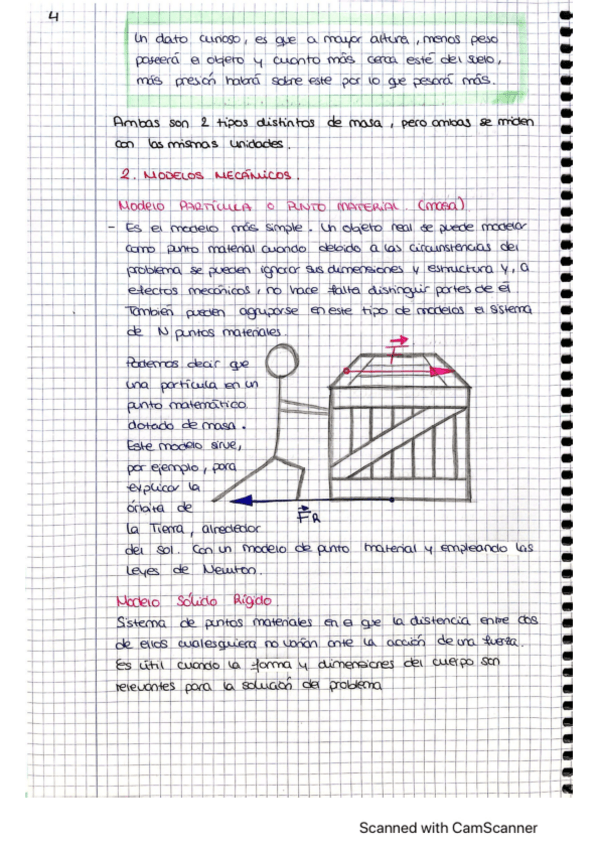 4
Un dato curioso, es que a mayor altura, menos peso
poseerá el objero y cuanto más cerca esté del suelo,
más presión habrá sobre este por lo que pesará más.
Ambas son 2 tipos distintos de masa, pero ambas se miden
con las mismas unidades.
2. MODELOS MECÁNICOS.
Modelo PARTÍCULA O PUNTO MATERIAL. (masa)
- Es el modelo más simple. Un objeto real se puede modelar
como punto material cuando debido a las circunstancias del
problema se pueden ignorar sus dimensiones y estructura y, a
efectos mecánicos, no hace falta distinguir partes de él
También pueden agruparse en este tipo de modelos el sistema
de N puntos materiales.
Podemos decir que
una partícula en un
punto matemático
dotado de masa.
Este modelo sirve,
por ejemplo, para
explicar la
órbita de
la Tierra, alrededor
del sol. Con un modelo de punto material y empleando las
Leyes de Newton.
F
FR
Modelo Sólido Rígido
Sistema de puntos materiales en el que la distancia entre dos
de ellos cualesquiera no varían ante la acción de una fuerza.
Es útil cuando la forma y dimensiones del cuerpo son
relevantes para la solución del problema
Scanned with CamScanner